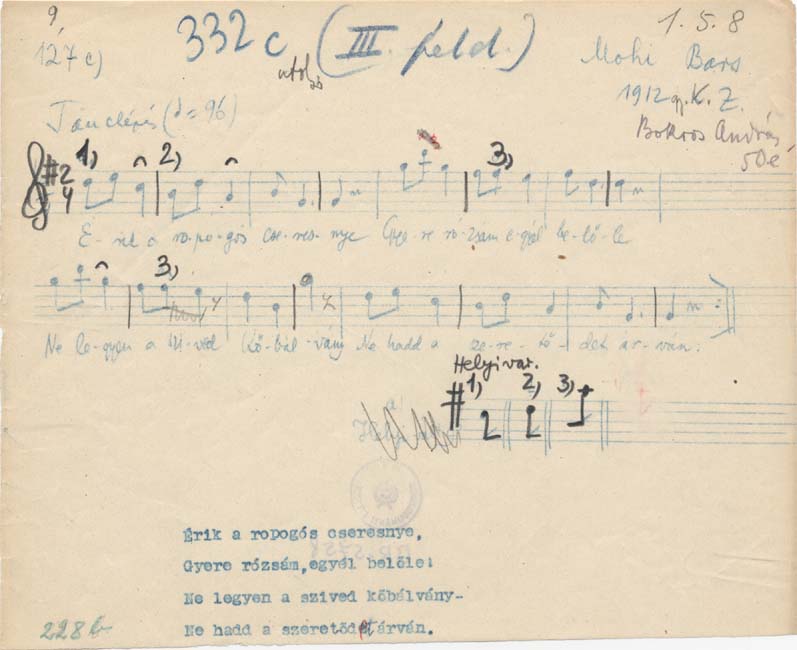 9,
127 c)
332 c
utolsó
(III. feld.)
1. 5. 8
Mohi Bars
1912 gy. K. Z.
Bokros András
50 é
Tánclépés (♩= 96)
1) 2) 3)
2
4
É-rik a ro-po-gós cse-res-nye Gye-re ró-zsám e-gyél be-lő-le
3)
Ne le-gyen a szi-ved kő-bál-vány Ne hadd a sze-re-tő-det ár-ván:
Helyi var.
1) 2, 3,
Érik a ropogós cseresnye,
Gyere rózsám,egyél belőle:
Ne legyen a szived kőbálvány-
Ne hadd a szeretődet árván.
228 b